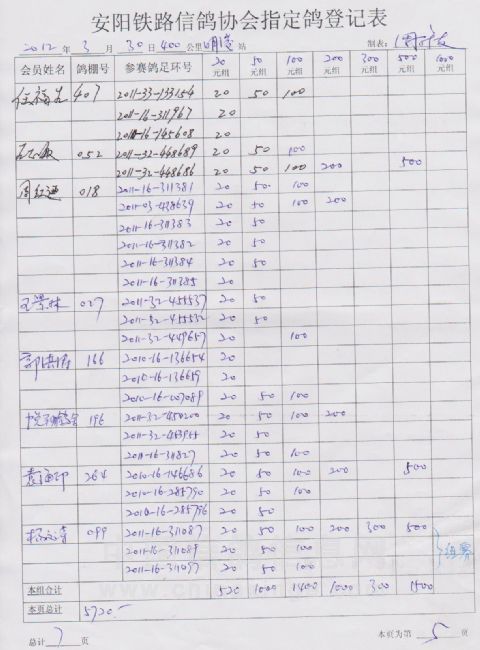 安阳铁路信鸽协会指定鸽登记表
2012 年 3 月 30 日 400 公里 站 制表:
会员姓名 鸽棚号 参赛鸽足环号 20元组 50元组 100元组 200元组 300元组 500元组 1000元组
407 2011-33-133154 20 50 100
2011-16-311967 20
2011-16-145608 20
052 2011-32-468689 20 50 100
2011-32-468686 20 50 100 200 500
周红道 018 2011-16-311381 20 50 100
2011-03-438639 20 50 100 200
2011-16-311383 20 50
2011-16-311382 20 50
2011-16-311384 20 50
2011-16-311385 20
王景林 027 2011-32-455537 20 50
2011-32-455532 20 50
2011-32-449657 20 100
166 2010-16-136654 20
2010-16-136659 20
2010-16-007089 20 50 100
196 2011-32-450200 20 50 100 200
2011-32- 20 50
2011-16-311827 20 50 100
袁海印 264 2010-16-146686 20 50 100 200 500
2010-16-285790 20 50 100
2010-16-285796 20 50
099 2011-16-311087 20 50 100 200 300 500
2011-16-311089 20 50 100
2011-16-311097 20 50 100
本组合计 520 1000 1400 1000 300 1500
本页总计 5720-
总计 7 页 本页为第 5 页